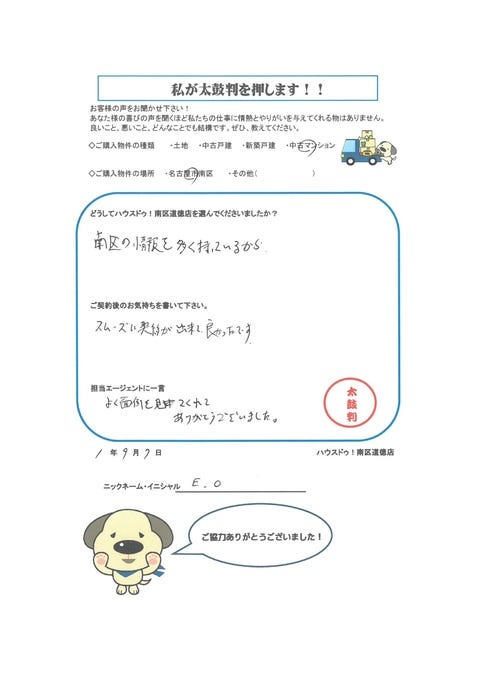 私が太鼓判を押します！！
お客様の声をお聞かせ下さい！
あなた様の喜びの声を聞くほど私たちの仕事に情熱とやりがいを与えてくれる物はありません。
良いこと、悪いこと、どんなことでも結構です。ぜひ、教えてください。
◇ご購入物件の種類　・土地　・中古戸建　・新築戸建　・中古マンション
◇ご購入物件の場所　・名古屋市南区　・その他（　　　　　　　）
どうしてハウスドゥ！南区道徳店を選んでくださいましたか？
南区の情報を多く持っているから
ご契約後のお気持ちを書いて下さい。
スムーズに契約が出来て良かったです
担当エージェントに一言
よく面倒を見てくれて
ありがとうございました。
太鼓判
1 年 9 月 7 日　ハウスドゥ！南区道徳店
ニックネーム・イニシャル　E.O
ご協力ありがとうございました！